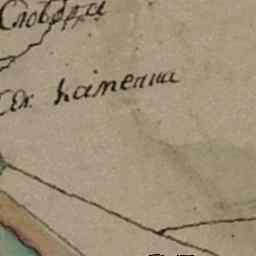 Слобода
Сел. Каменка